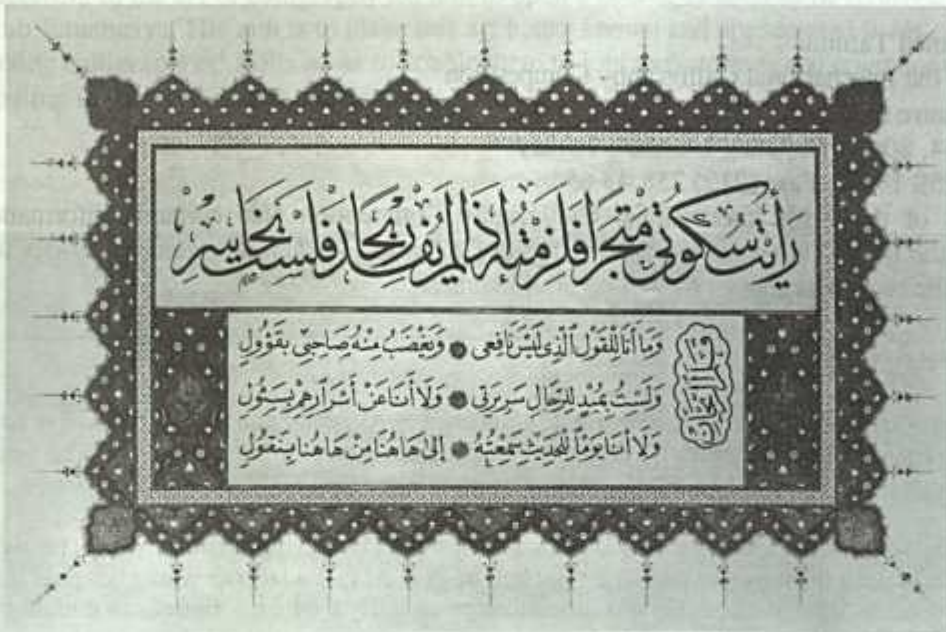 رَأَيْتُ سُكُوتِي مَتْجَرًا فَلَزِمْتُهُ إِذَا لَمْ يُفِدْ رِبْحًا فَلَسْتُ بِخَاسِرِ
وَمَا أَنَا لِلْقَوْلِ الَّذِي لَيْسَ نَافِعِي وَيَغْضَبُ مِنْهُ صَاحِبِي بِقَؤُولِ
وَلَسْتُ بِمُبْدٍ لِلرِّجَالِ سَرِيرَتِي وَلَا أَنَا عَنْ أَسْرَارِهِمْ بِسَئُولِ
وَلَا أَنَا يَوْمًا لِلْحَدِيثِ سَمِعْتُهُ إِلَى هَاهُنَا مِنْ هَاهُنَا بِنَقُولِ